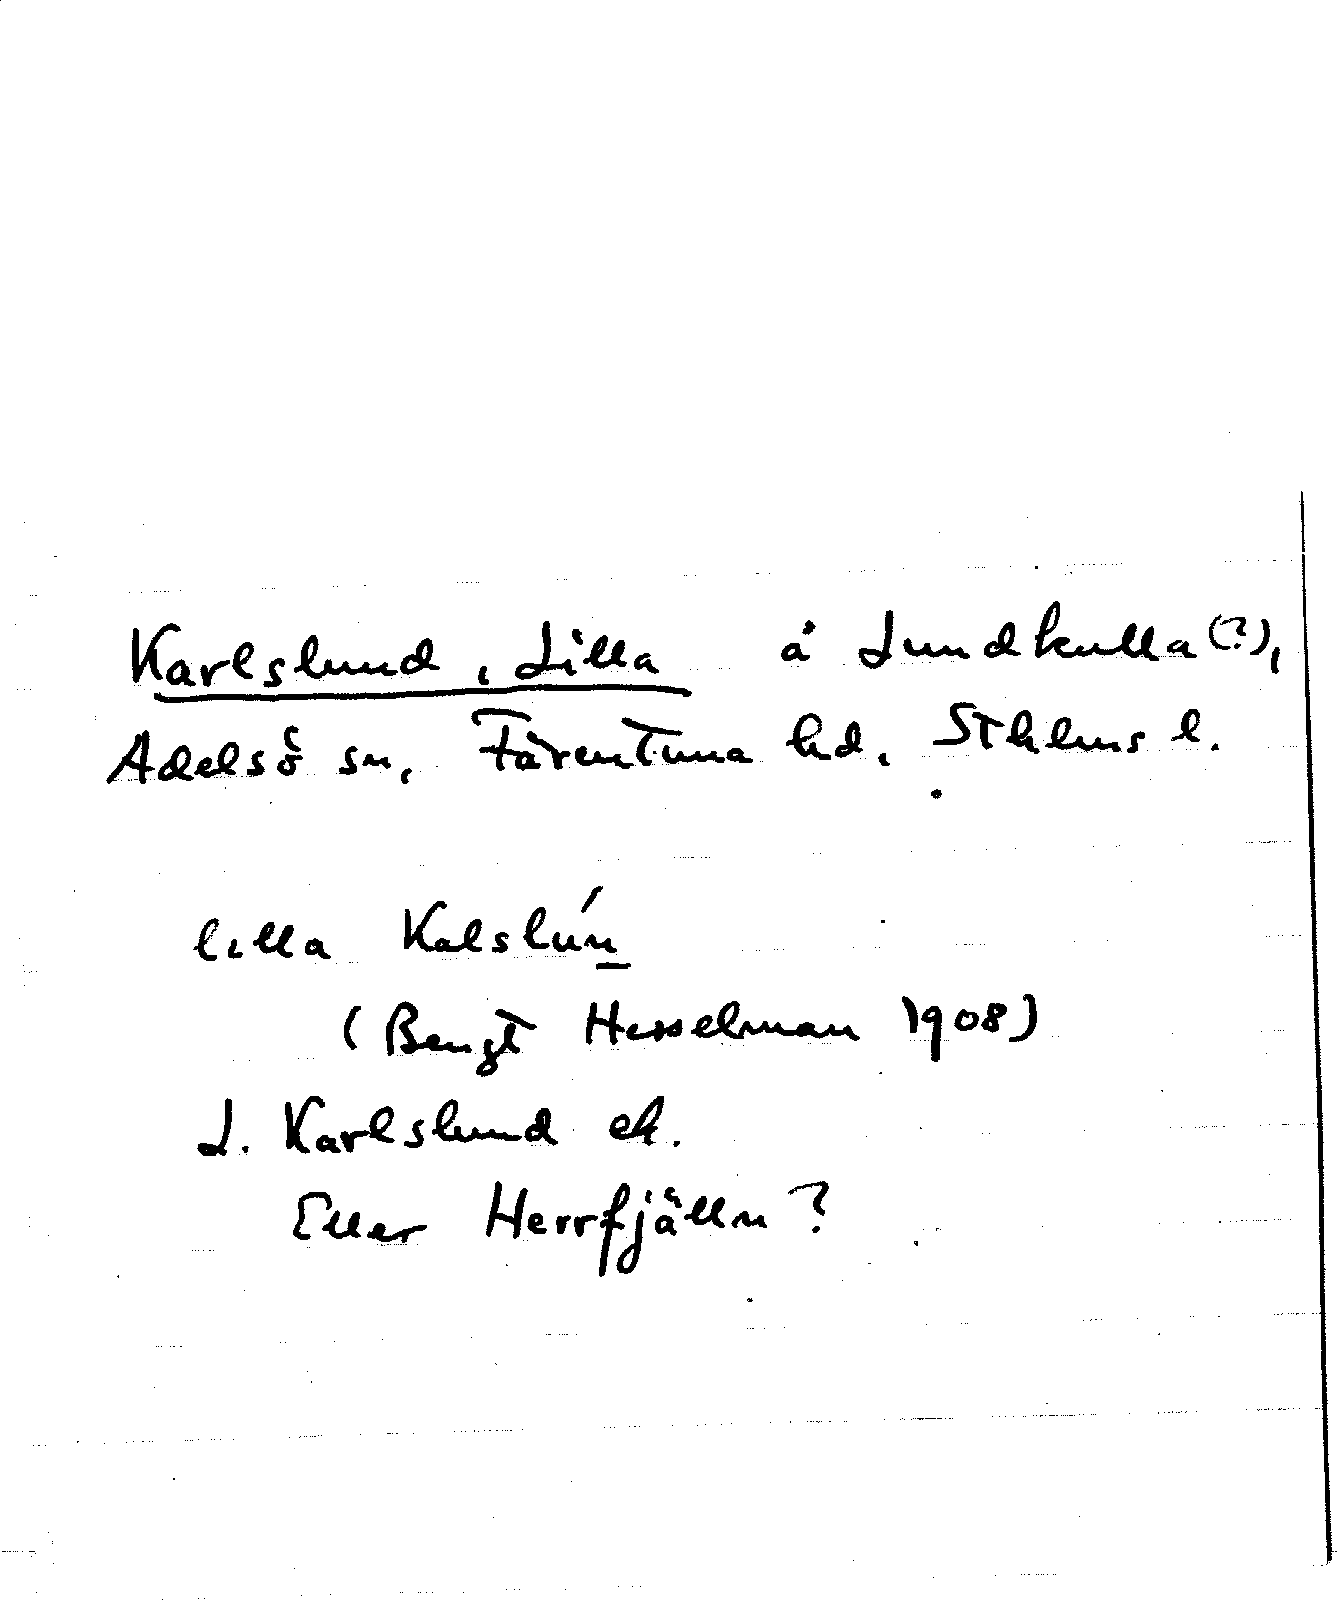 Karlslund, Lilla å Lundkulla(?),
Adelsö sn, Färentuna hd, Sthlms l.
lilla Kalslún
(Bengt Hesselman 1908)
L. Karlslund ek.
Eller Herrfjälln?